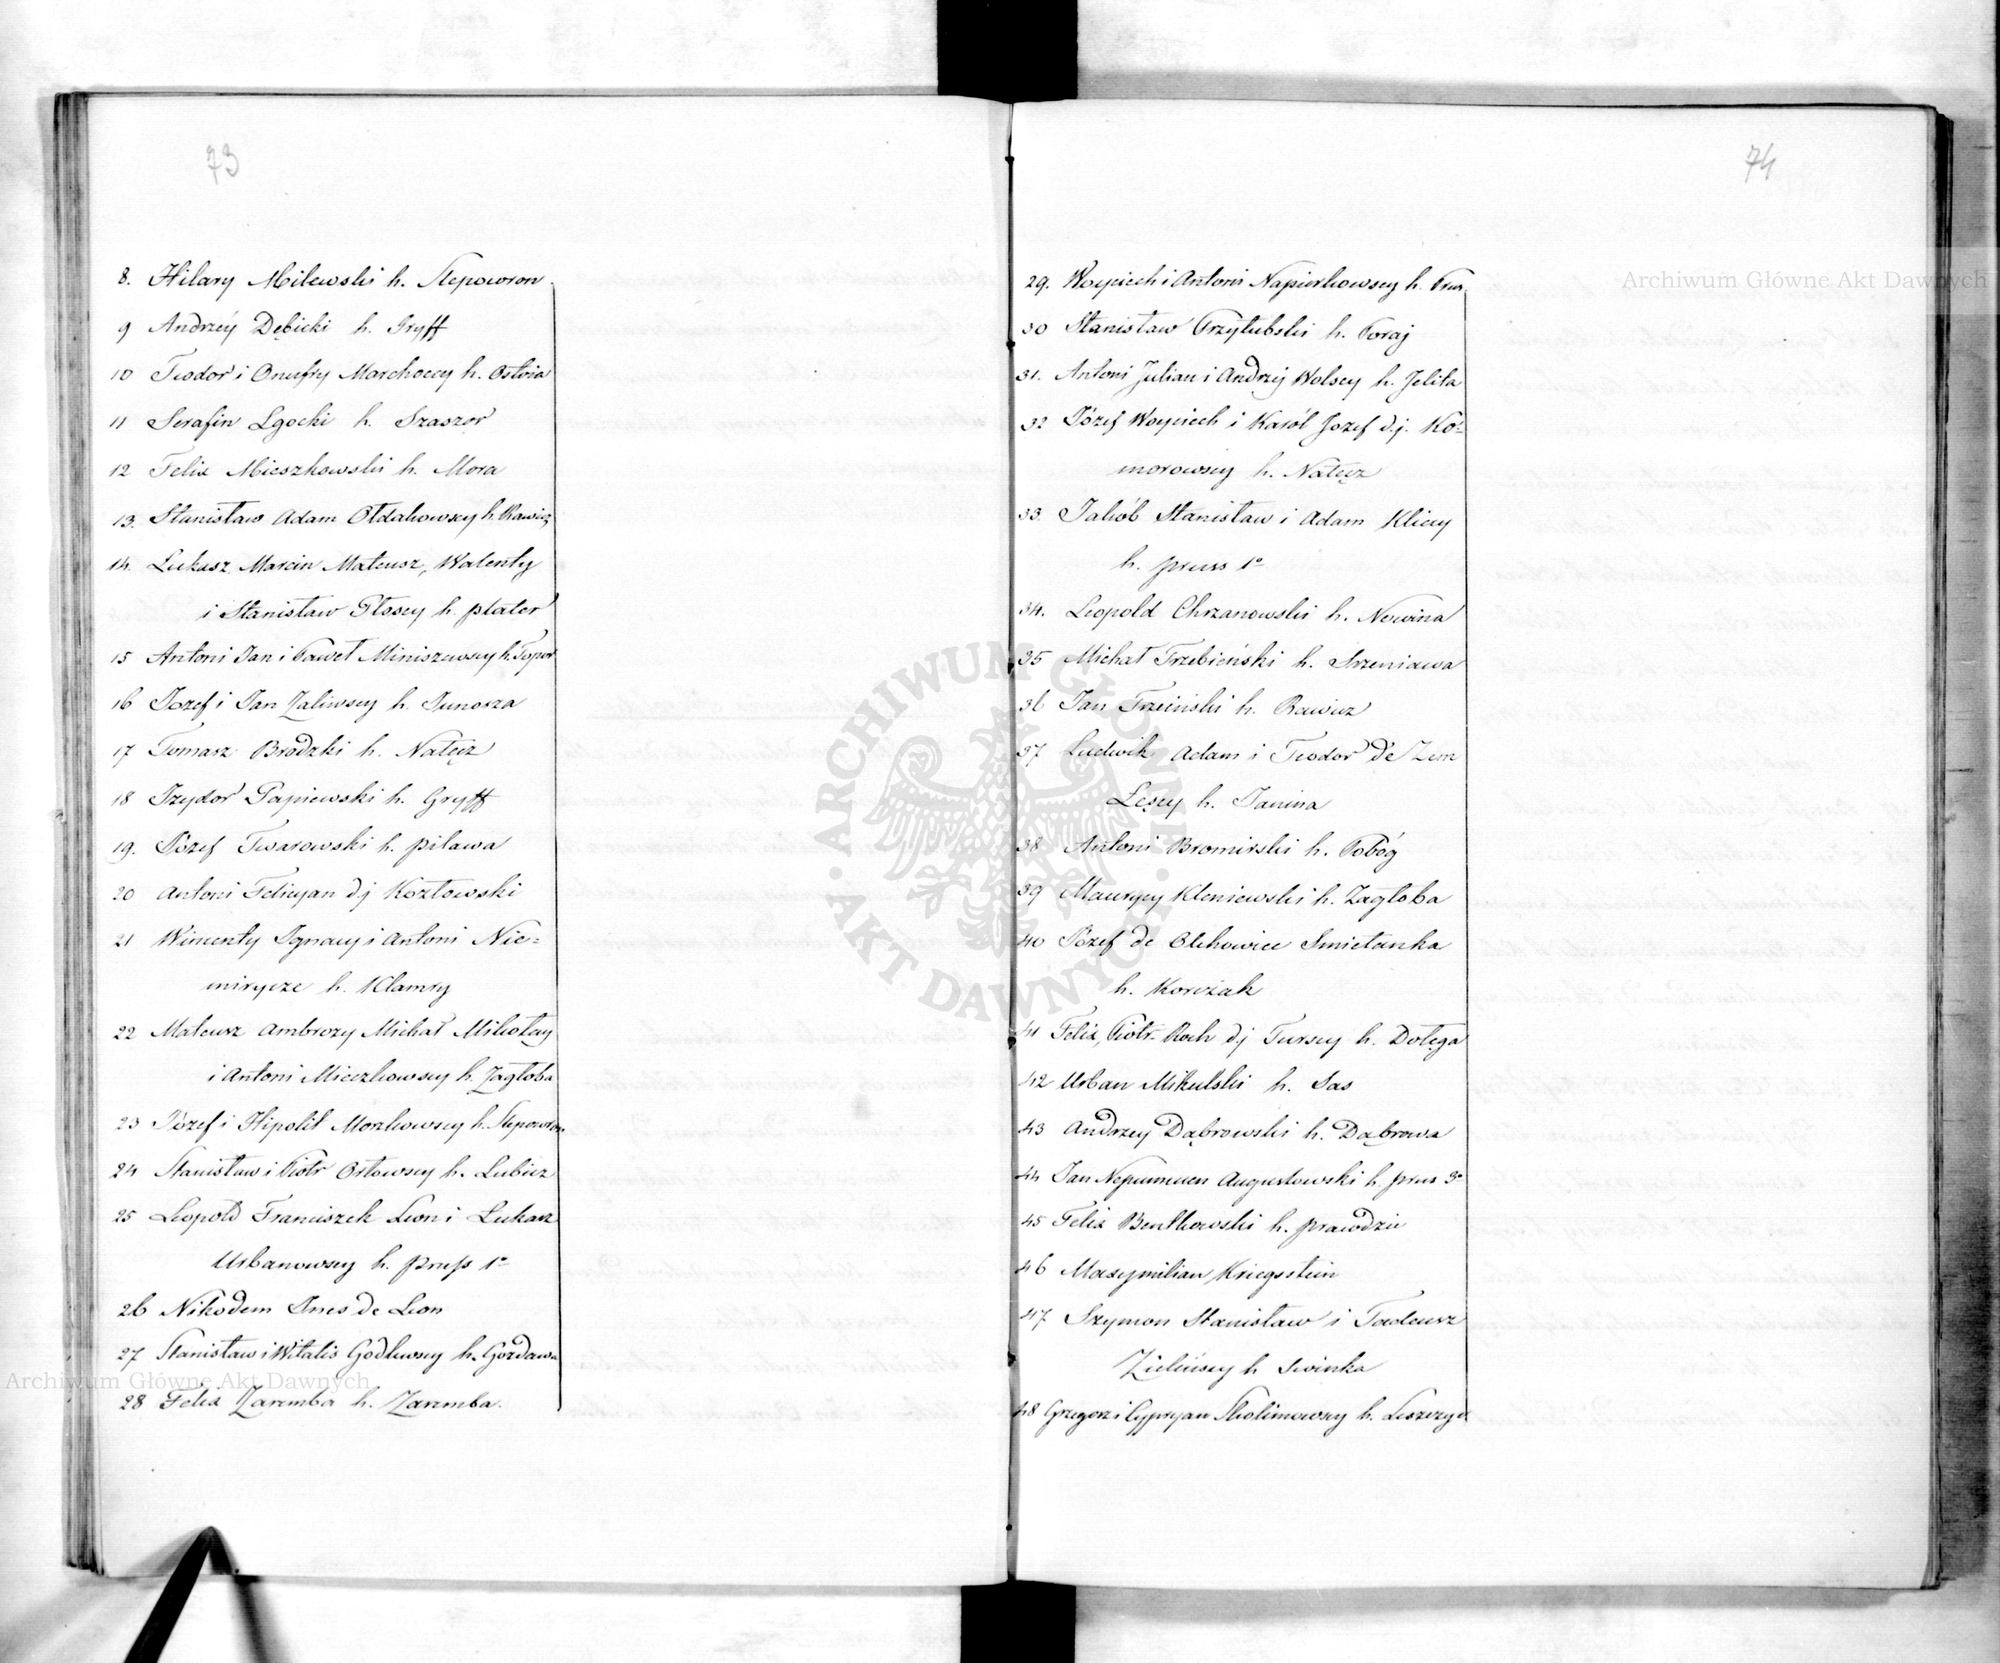 73
8. Hilary Milewski h. Slepowron.
9 Andrzéy Dębicki h. Gryff
10 Teodor i Onufry Marchoccy h. Ostoia
11 Serafin Lgocki h. Szaszor
12 Felix Mieszkowski h. Mora
13. Stanisław Adam Ołdakowscy h. Rawicz
14. Łukasz Marcin Mateusz, Walenty
i Stanisław Głoscy h. plater
15 Antoni Jan i Paweł Miniszewscy h. Topor
16 Jozef i Jan Zaliwscy h. Junosza
17 Tomasz Brodzki h. Nałęcz
18 Izydor Papiewski h. Gryff
19. Józef Twarowski h. pilawa
20 Antoni Felicyan d.j Kozłowski
21 Wincenty Ignacy i Antoni Nie=
mirycze h. Klamry
22 Mateusz Ambrozy Michał Mikołay
i Antoni Mieczkowscy h. Zagłoba
23 Józef i Hipolit Morzkowscy h. Slepowron
24 Stanisław i Piotr Orłowscy h. Lubicz
25 Leopold Franciszek Leon i Łukasz
Urbanowscy h. pruss 1º
26 Nikodem Ines de Leon
27 Stanisław i Witalis Godlewscy h. Gozdawa
28 Felix Zaremba h. Zaremba.
74
29. Woyciech i Antoni Napiorkowscy h. Prus.
30 Stanisław Przyłubski h. Poraj
31. Antoni Julian i Andrzéj Wolscy h. Jelita
32 Józef Woyciech i Karól Jozef d.j. Ko=
morowscy h. Nałęcz
33. Jakób Stanisław i Adam Kliccy
h. pruss 1º
34. Leopold Chrzanowski h. Nowina
35 Michał Trzebieński h. Srzeniawa
36 Jan Trzciński h. Rawicz
37 Ludwik Adam i Teodor de Zem
Łęscy h. Janina
38 Antoni Bromirski h. Pobóg
39 Maurycy Kleniewski h. Zagłoba
40 Józef de Olchowiec Smietanka
h. Korczak
41 Felix, Piotr Roch d.j Turscy h. Dołęga
42 Urban Mikulski h. Sas
43 Andrzey Dąbrowski h. Dąbrowa
44 Jan Nepumucen Augustowski h. prus 3º
45 Felix Bentkowski h. prawdzic
46 Maxymilian Kriegsstein
47 Szymon Stanisław i Tadeusz
Zielińscy h Swinka
48 Grzegorz i Cypryan Skolimowscy h. Leszczyc
Archiwum Główne Akt Dawnych
Archiwum Główne Akt Dawnych
ARCHIWUM GŁÓWNE AKT DAWNYCH